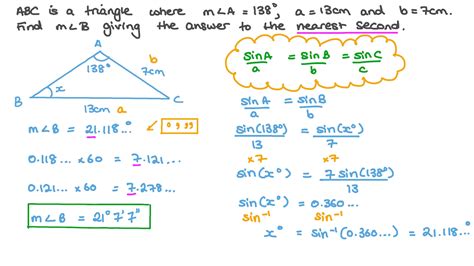 ABC is a triangle where m∠A = 138°, a = 13cm and b = 7cm.
Find m∠B giving the answer to the nearest second.
A
138°
b
7cm
B
x
C
13cm a
sinA/a = sinB/b = sinC/c
m∠B = 21.118...° ° ' "
0.118... ×60 = 7.121...
0.121... ×60 = 7.278...
m∠B = 21° 7' 7"
sinA/a = sinB/b
sin(138°)/13 = sin(x°)/7
×7 ×7
sin(x°) = 7sin(138°)/13
sin(x°) = 0.360...
sin⁻¹ sin⁻¹
x° = sin⁻¹(0.360...) = 21.118...°